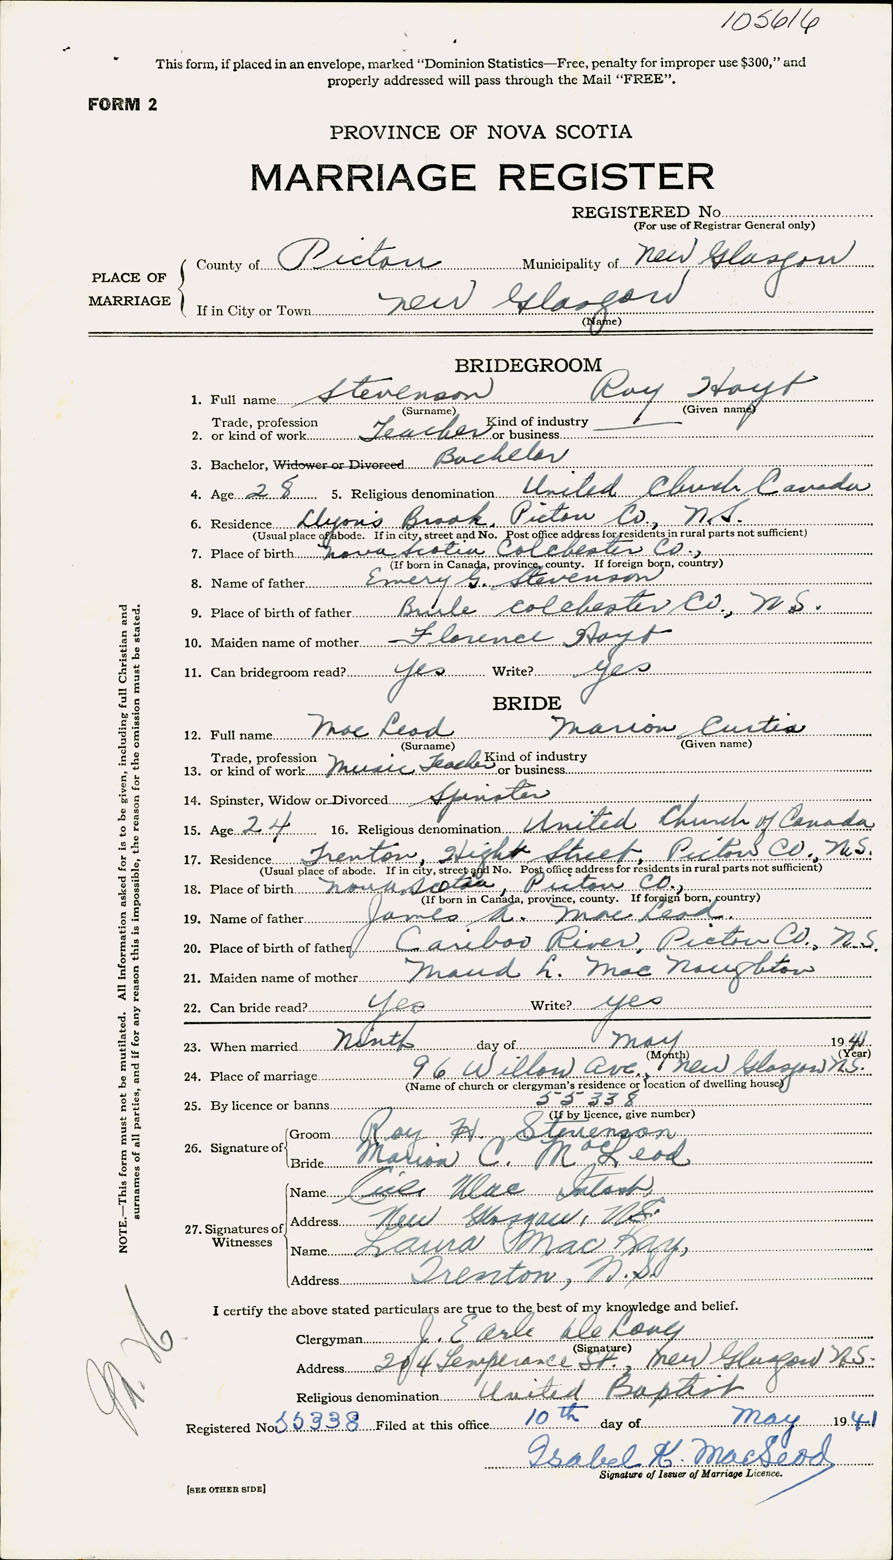 105616
This form, if placed in an envelope, marked "Dominion Statistics—Free, penalty for improper use $300," and
properly addressed will pass through the Mail "FREE".
FORM 2
PROVINCE OF NOVA SCOTIA
MARRIAGE REGISTER
REGISTERED No.
(For use of Registrar General only)
PLACE OF MARRIAGE
County of Picton Municipality of New Glasgow
If in City or Town New Glasgow
(Name)
BRIDEGROOM
1. Full name Stevenson Roy Hoyt
(Surname) (Given name)
2. Trade, profession or kind of work Teacher Kind of industry or business —
3. Bachelor, Widower or Divorced Bachelor
4. Age 28 5. Religious denomination United Church Canada
6. Residence Lyon's Brook, Picton Co., N.S.
(Usual place of abode. If in city, street and No. Post office address for residents in rural parts not sufficient)
7. Place of birth Nova Scotia Colchester Co.,
(If born in Canada, province, county. If foreign born, country)
8. Name of father Emery G. Stevenson
9. Place of birth of father Brule Colchester Co., N.S.
10. Maiden name of mother Florence Hoyt
11. Can bridegroom read? yes Write? yes
BRIDE
12. Full name MacLeod Marion Curtis
(Surname) (Given name)
13. Trade, profession or kind of work Music Teacher Kind of industry or business
14. Spinster, Widow or Divorced Spinster
15. Age 24 16. Religious denomination United Church of Canada
17. Residence Trenton, Hight Street, Picton Co., N.S.
(Usual place of abode. If in city, street and No. Post office address for residents in rural parts not sufficient)
18. Place of birth Nova Scotia, Picton Co.,
(If born in Canada, province, county. If foreign born, country)
19. Name of father James A. MacLeod.
20. Place of birth of father Cariboo River, Picton Co., N.S.
21. Maiden name of mother Maud L. MacNaughton
22. Can bride read? yes Write? yes
23. When married Ninth day of May 1941
(Month) (Year)
24. Place of marriage 96 Willow Ave., New Glasgow N.S.
(Name of church or clergyman's residence or location of dwelling house)
25. By licence or banns 55338
(If by licence, give number)
26. Signature of Groom Roy H. Stevenson
Bride Marion C. MacLeod
27. Signatures of Witnesses
Name MacIntosh,
Address New Glasgow, N.S.
Name Laura MacKay,
Address Trenton, N.S.
I certify the above stated particulars are true to the best of my knowledge and belief.
Clergyman J. Earle DeLong
(Signature)
Address 204 Temperance St., New Glasgow N.S.
Religious denomination United Baptist
Registered No. 55338 Filed at this office 10th day of May 1941
Isabel K. MacLeod
Signature of Issuer of Marriage Licence.
[SEE OTHER SIDE]
NOTE.—This form must not be mutilated. All Information asked for is to be given, including full Christian and
surnames of all parties, and if for any reason this is impossible, the reason for the omission must be stated.